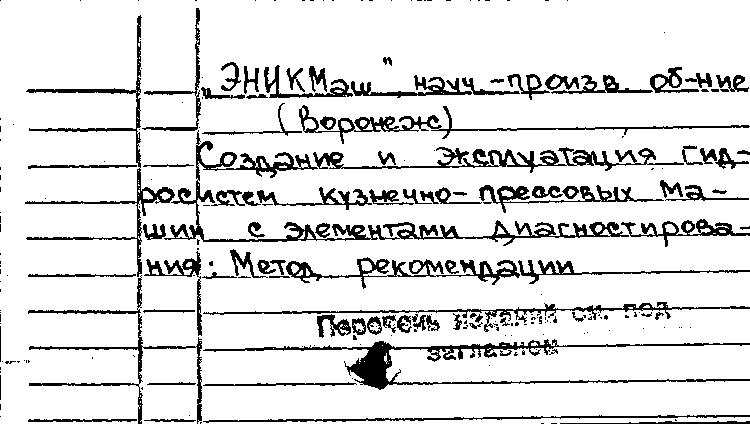 „ЭНИКМаш", науч.-произв. об-ние
(Воронеж)
Создание и эксплуатация гид-
росистем кузнечно-прессовых ма-
шин с элементами диагностирова-
ния: Метод. рекомендации
Перечень изданий см. под
заглавном